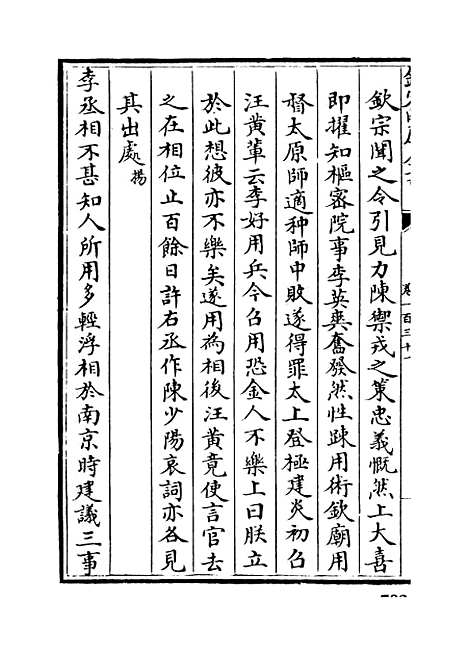 欽宗聞之令引見力陳禦戎之策忠義慨然上大喜
即擢知樞密院事李英爽奮發然性疎用術欽廟用
督太原師適种師中敗遂得罪太上登極建炎初召
汪黄輩云李好用兵今召用恐金人不樂上曰朕立
於此想彼亦不樂矣遂用為相後汪黄竟使言官去
之在相位止百餘日許右丞作陳少陽哀詞亦各見
其出處揚
李丞相不甚知人所用多輕浮相於南京時建議三事
卷一百三十一